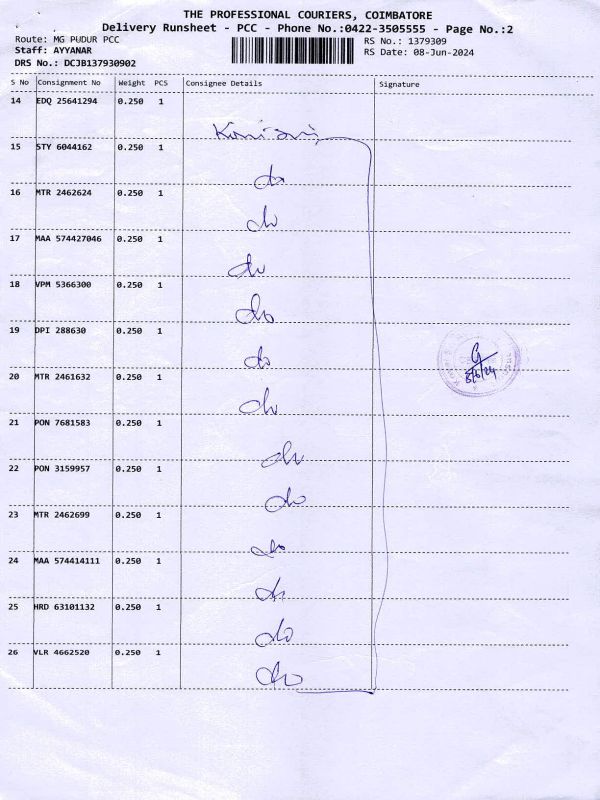 THE PROFESSIONAL COURIERS, COIMBATORE
Delivery Runsheet - PCC - Phone No.:0422-3505555 - Page No.:2
Route: MG PUDUR PCC
Staff: AYYANAR
DRS No.: DCJB137930902
RS No.: 1379309
RS Date: 08-Jun-2024
S No Consignment No Weight PCS Consignee Details Signature
14 EDQ 25641294 0.250 1
15 STY 6044162 0.250 1
do
16 MTR 2462624 0.250 1
do
17 MAA 574427046 0.250 1
do
18 VPM 5366300 0.250 1
do
19 DPI 288630 0.250 1
do
20 MTR 2461632 0.250 1
do
21 PON 7681583 0.250 1
do
22 PON 3159957 0.250 1
do
23 MTR 2462699 0.250 1
do
24 MAA 574414111 0.250 1
do
25 HRD 63101132 0.250 1
do
26 VLR 4662520 0.250 1
do
8/6/24